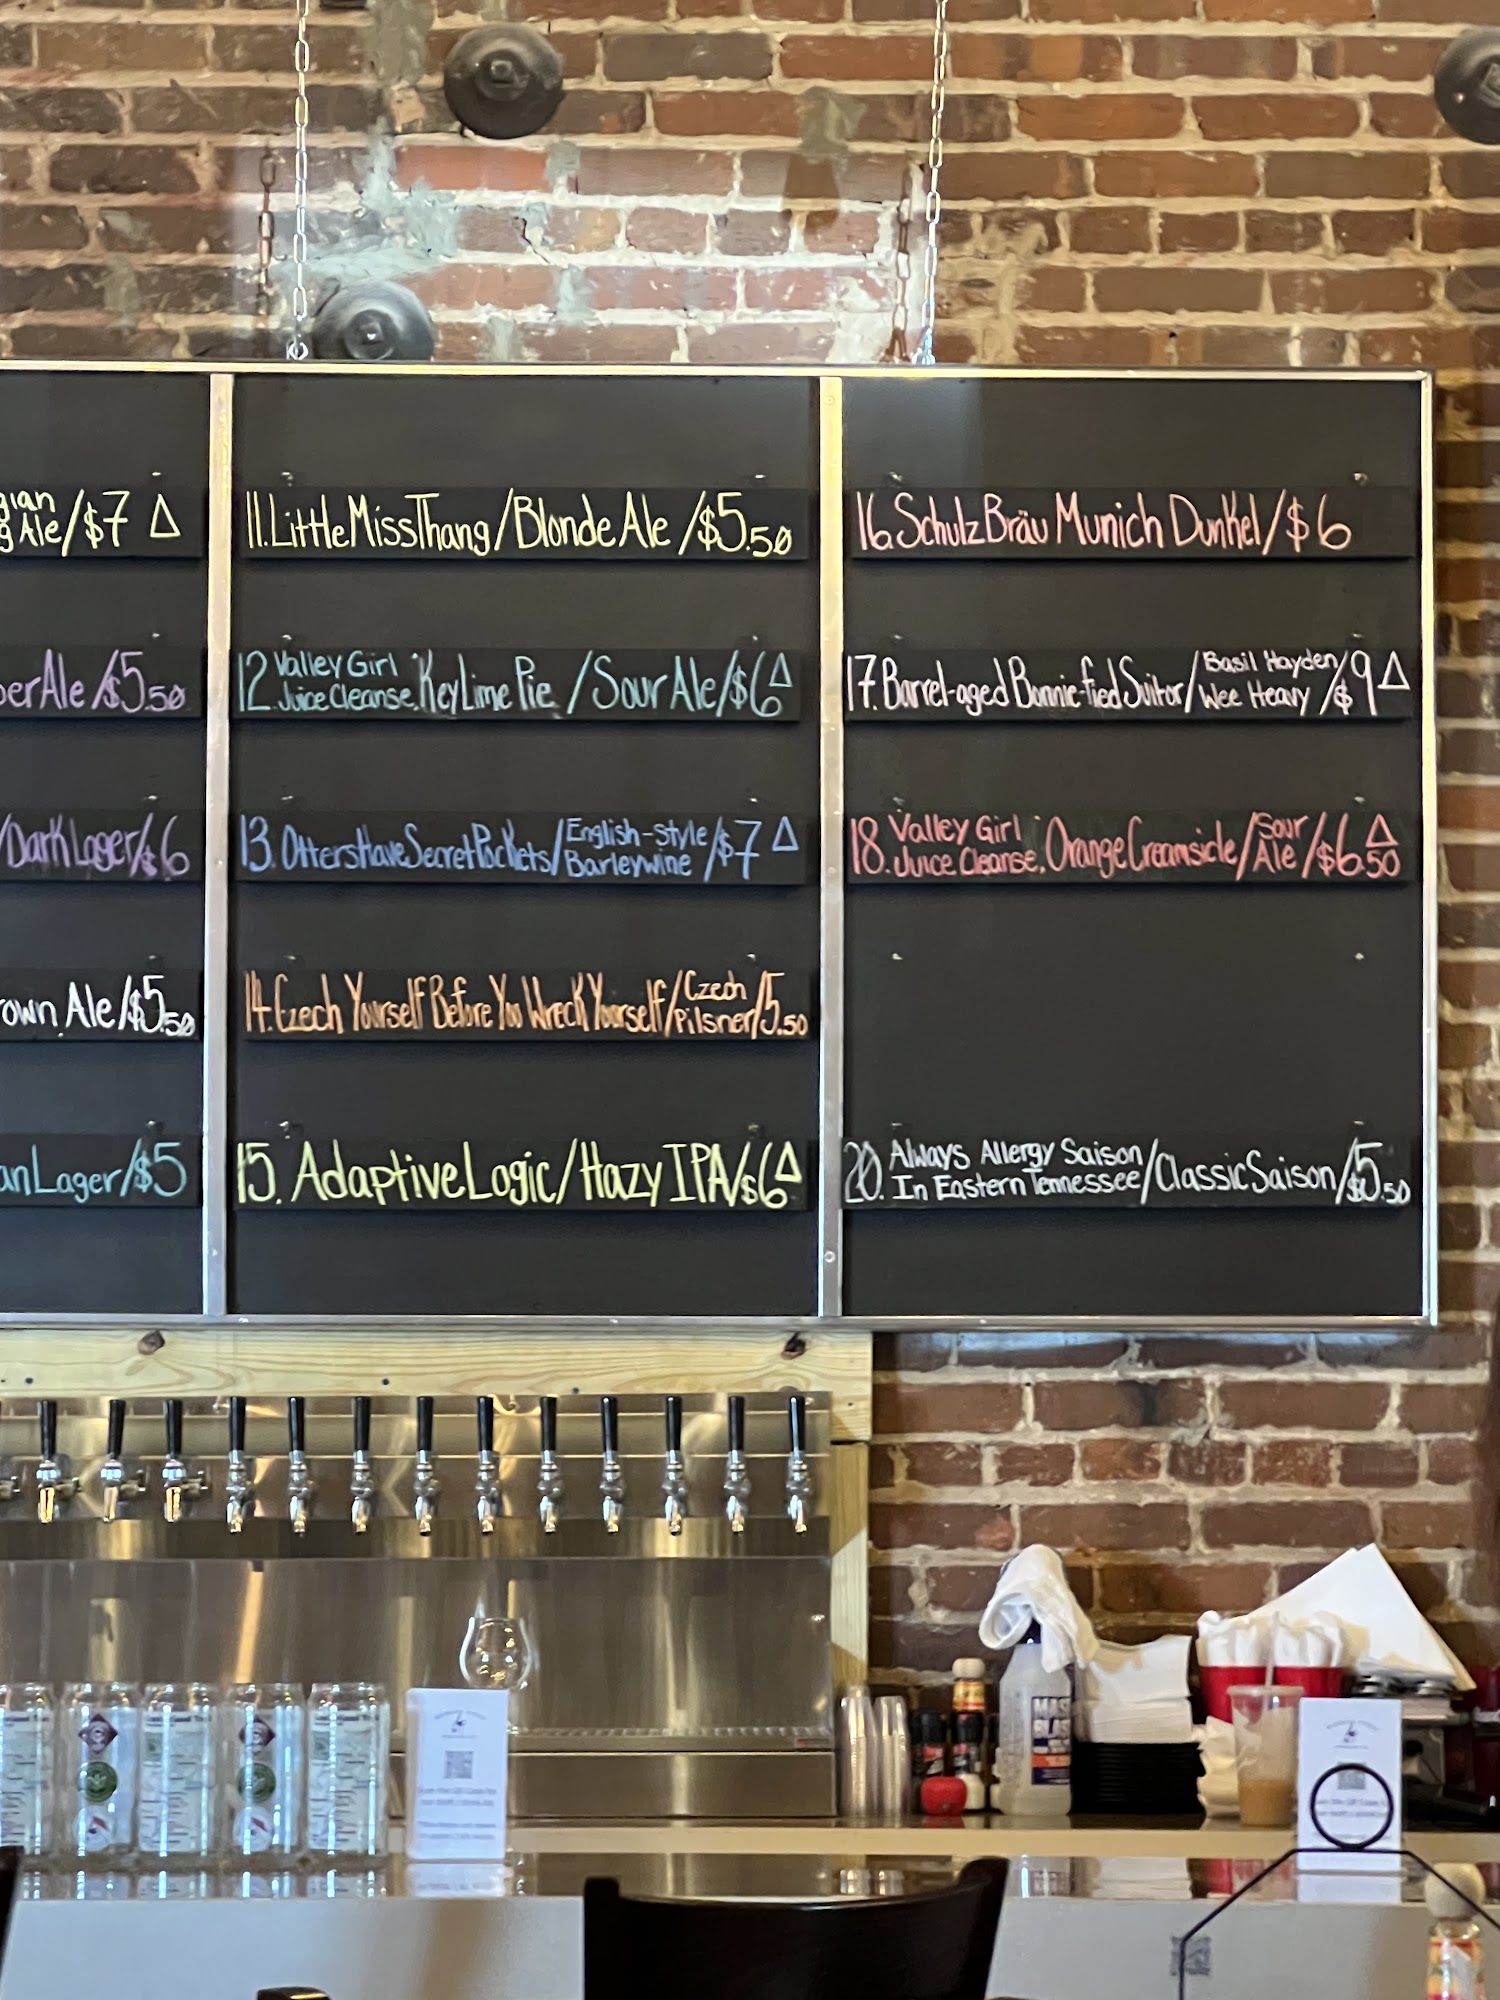 gian
g Ale/$7 △
berAle/$5.50
/Dark Lager/$6
own Ale/$5.50
anLager/$5
11. Little Miss Thang/Blonde Ale/$5.50
12. Valley Girl
Juice Cleanse: Key Lime Pie/Sour Ale/$6 △
13. Otters Have Secret Pockets/English-style
Barleywine/$7 △
14. Czech Yourself Before You Wreck Yourself/Czech
Pilsner/5.50
15. Adaptive Logic/Hazy IPA/$6 △
16. Schulz Bräu Munich Dunkel/$6
17. Barrel-aged Bonnie-fied Suitor/Basil Hayden
Wee Heavy/$9 △
18. Valley Girl
Juice Cleanse: Orange Creamsicle/Sour
Ale/$6.50 △
20. Always Allergy Saison
In Eastern Tennessee/Classic Saison/$5.50